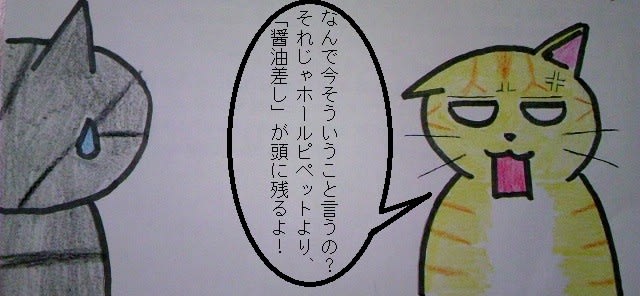 なんで今そういうこと言うの？
それじゃホールピペットより、
「醤油差し」が頭に残るよ！